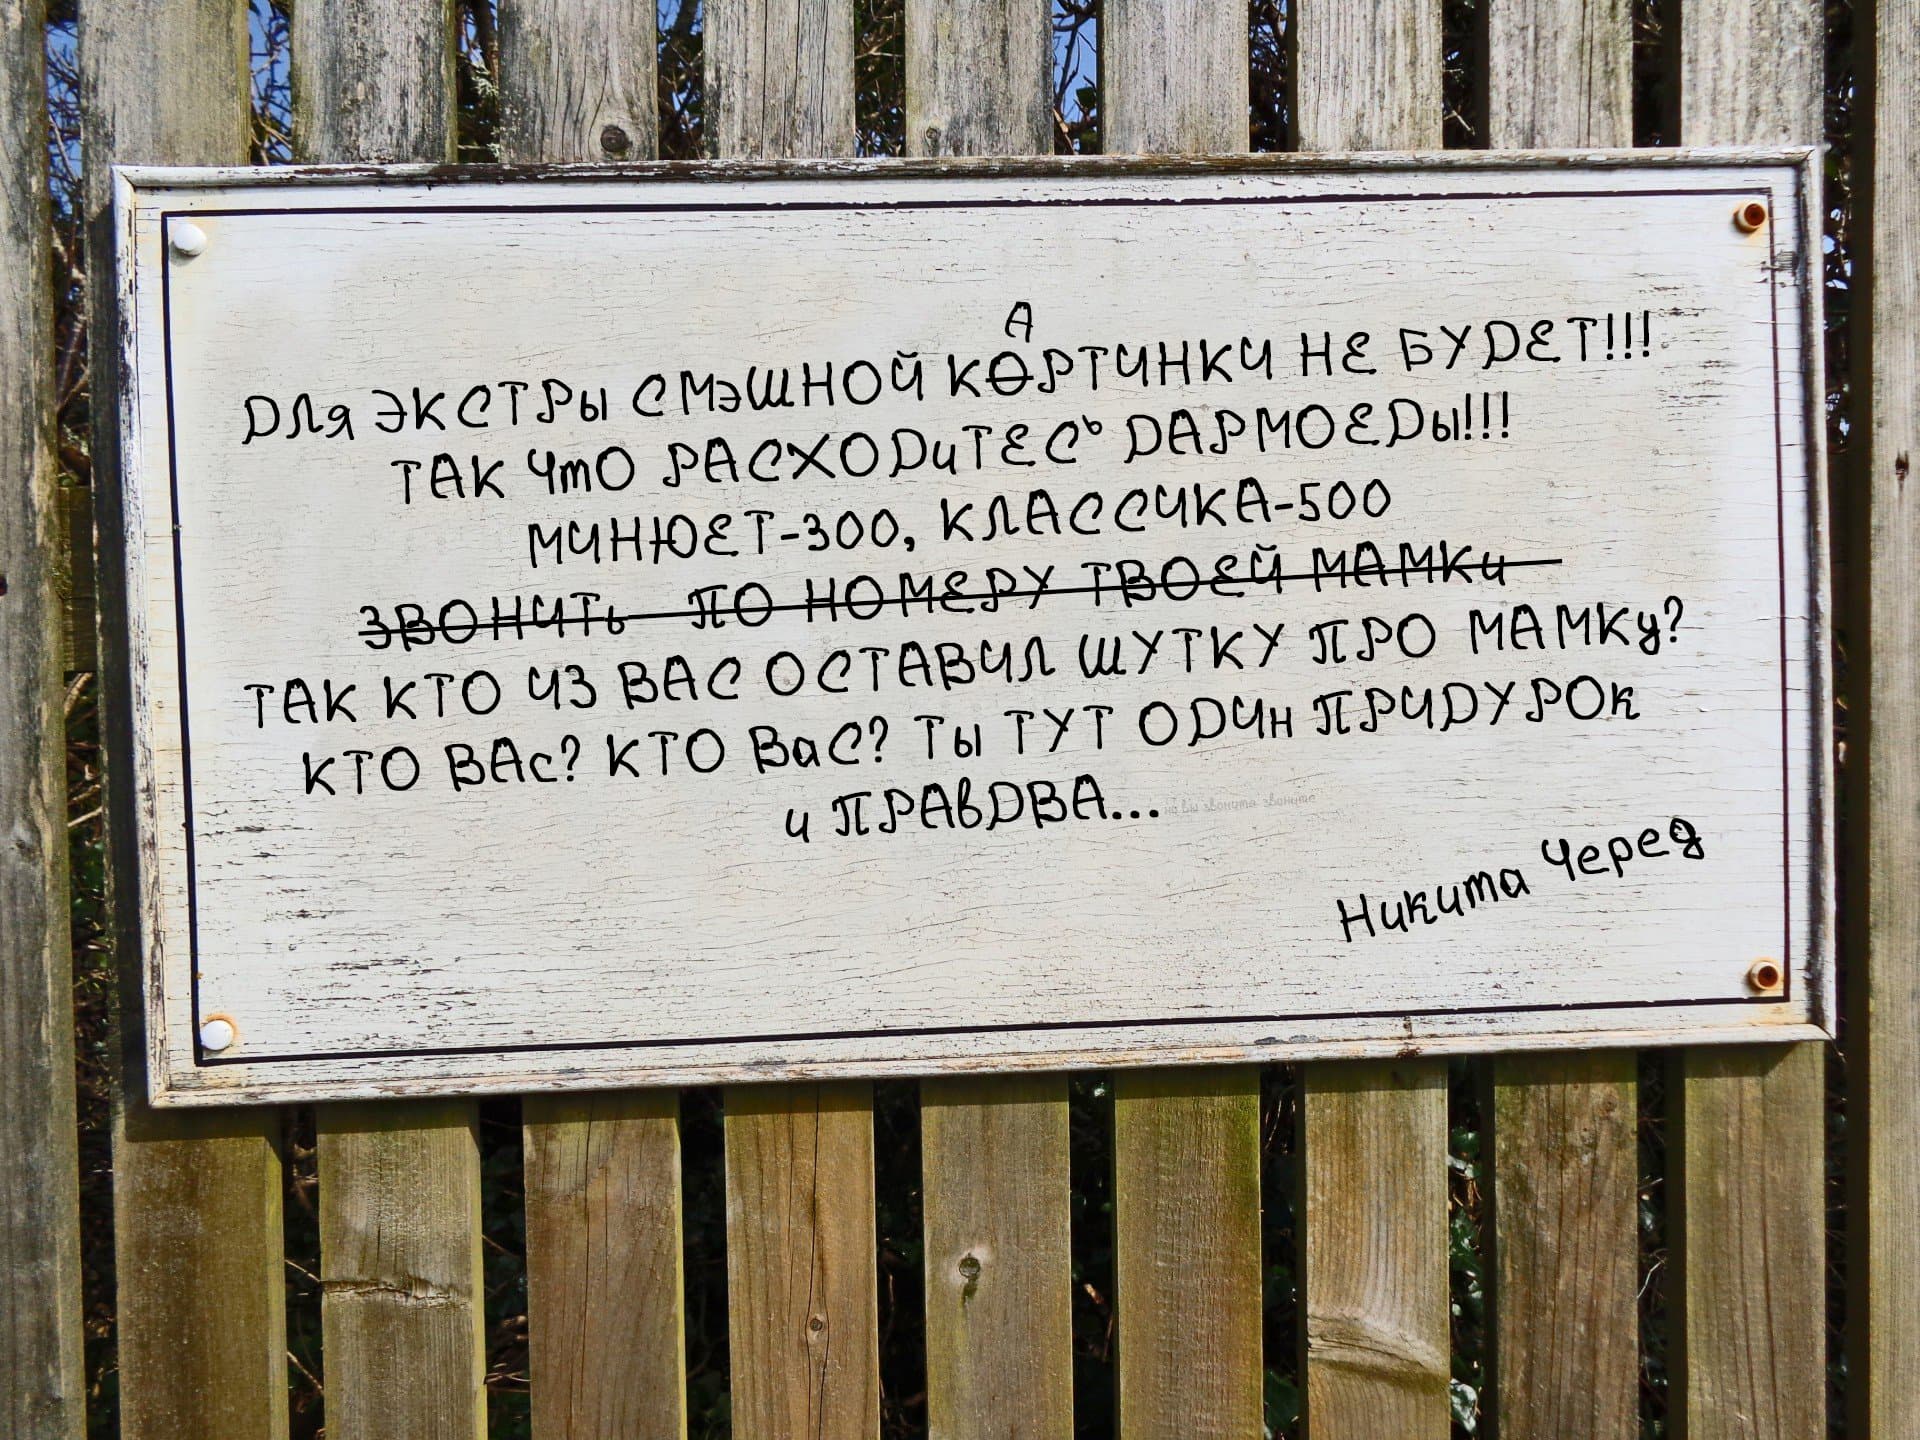 ДЛя ЭКСТРЫ СМэШНОЙ КОАРТИНКИ НЕ БУДЕТ!!!
ТАК ЧтО РАСХОДиТЕСЬ ДАРМОЕДЫ!!!
МИНЮЕТ-300, КЛАССИКА-500
ЗВОНИТЬ ПО НОМЕРУ ТВОЕЙ МАМКи
ТАК КТО ИЗ ВАС ОСТАВИЛ ШУТКУ ПРО МАМКу?
КТО ВАс? КТО ВаС? ТЫ ТУТ ОДИн ПРИДУРОк
и ПРАвДВА... но вы звоните звоните
Никита Черед